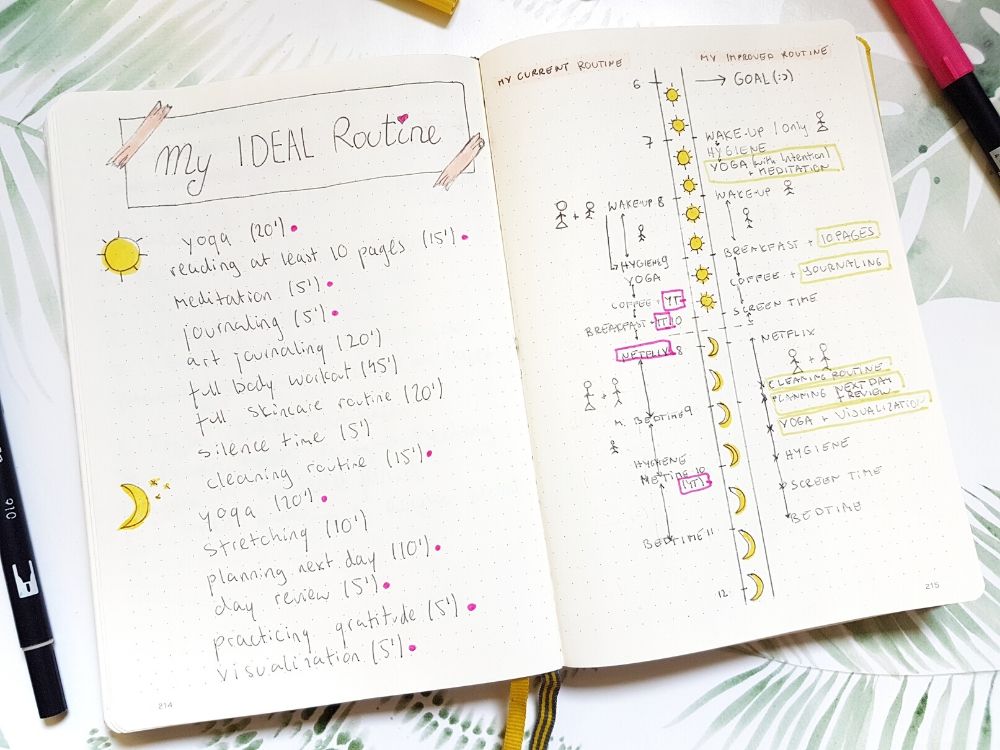 My IDEAL Routine
yoga (20')
reading at least 10 pages (15')
meditation (5')
journaling (5')
art journaling (20')
full body workout (45')
full skincare routine (20')
silence time (5')
cleaning routine (15')
yoga (20')
stretching (10')
planning next day (10')
day review (5')
practicing gratitude (5')
visualization (5')
214
MY CURRENT ROUTINE
6
7
WAKE-UP 8
HYGIENE 9
YOGA
COFFEE + YT
BREAKFAST + YT 10
NETFLIX 8
BEDTIME 9
HYGIENE
ME TIME 10
(YT)
BEDTIME 11
12
MY IMPROVED ROUTINE
→ GOAL (:>)
WAKE-UP / only
HYGIENE
YOGA (with intention)
+ MEDITATION
WAKE-UP
BREAKFAST + 10 PAGES
COFFEE + JOURNALING
SCREEN TIME
NETFLIX
CLEANING ROUTINE
PLANNING NEXT DAY
+ REVIEW
YOGA + VISUALIZATION
HYGIENE
SCREEN TIME
BEDTIME
215
010